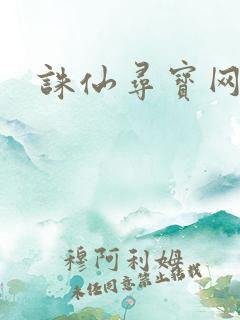 誅仙尋寶网
穆阿利姆
未经同意禁止转载